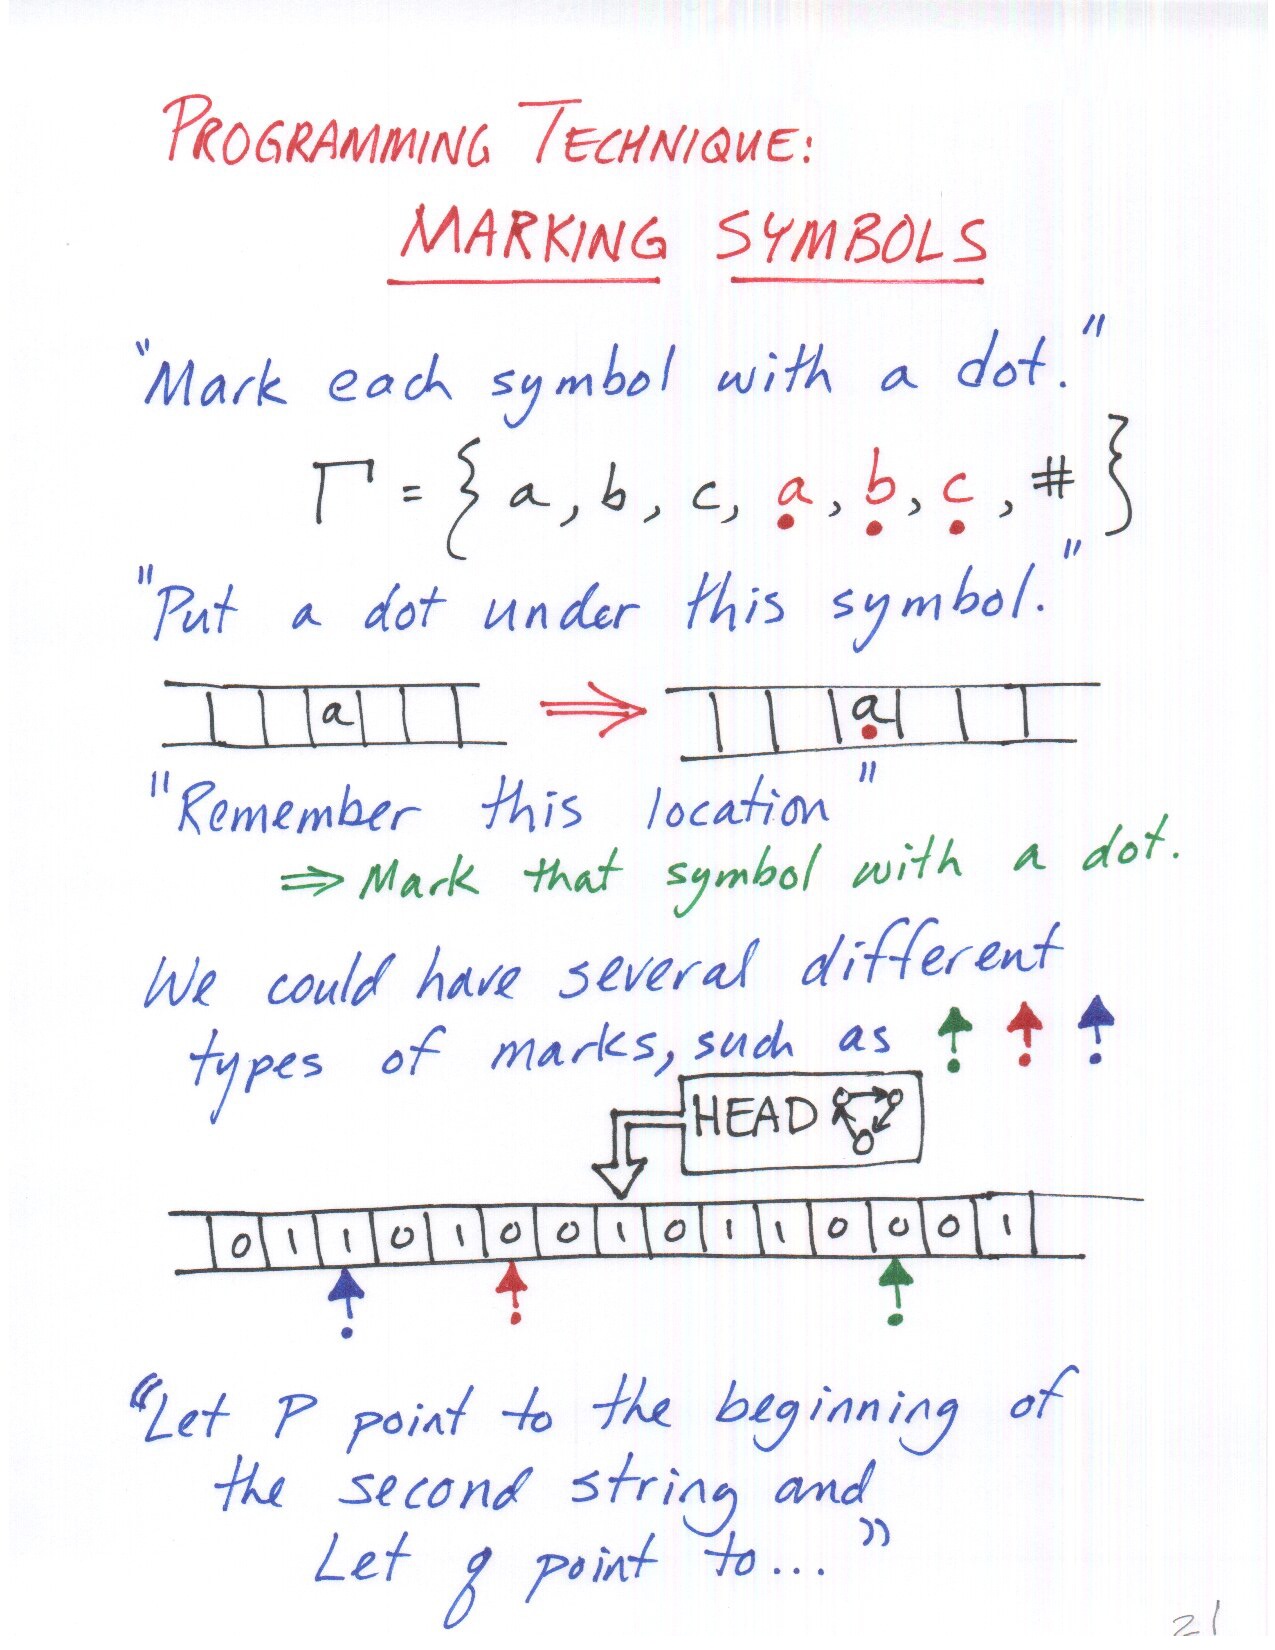 PROGRAMMING TECHNIQUE:
MARKING SYMBOLS
"Mark each symbol with a dot."
Γ = { a, b, c, ạ, ḅ, c̣, # }
"Put a dot under this symbol."
a ⇒ ạ
"Remember this location"
⇒ Mark that symbol with a dot.
We could have several different
types of marks, such as
HEAD
0 1 1 0 1 0 0 1 0 1 1 0 0 0 1
"Let P point to the beginning of
the second string and
Let q point to..."
21